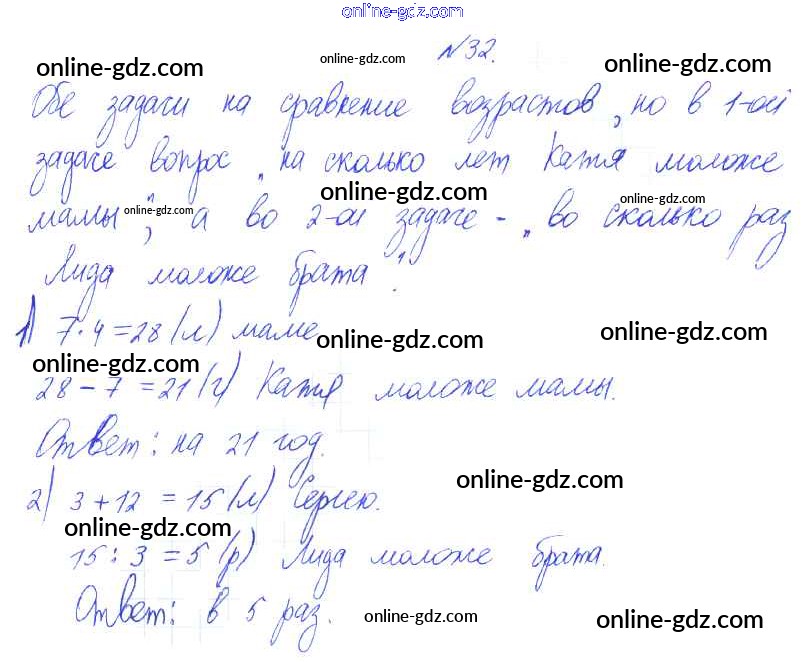 online-gdz.com
online-gdz.com online-gdz.com №32. online-gdz.com
Обе задачи на сравнение возрастов, но в 1-ой
задаче вопрос „на сколько лет Катя моложе
online-gdz.com online-gdz.com
мамы", online-gdz.com а во 2-ой задаче - „во сколько раз
Лида моложе брата".
1) 7·4=28 (л) маме online-gdz.com online-gdz.com
online-gdz.com
28-7=21 (г) Катя моложе мамы.
Ответ: на 21 год.
2) 3+12=15 (л) Сергею. online-gdz.com
online-gdz.com online-gdz.com
15:3=5 (р) Лида моложе брата.
Ответ: в 5 раз. online-gdz.com online-gdz.com